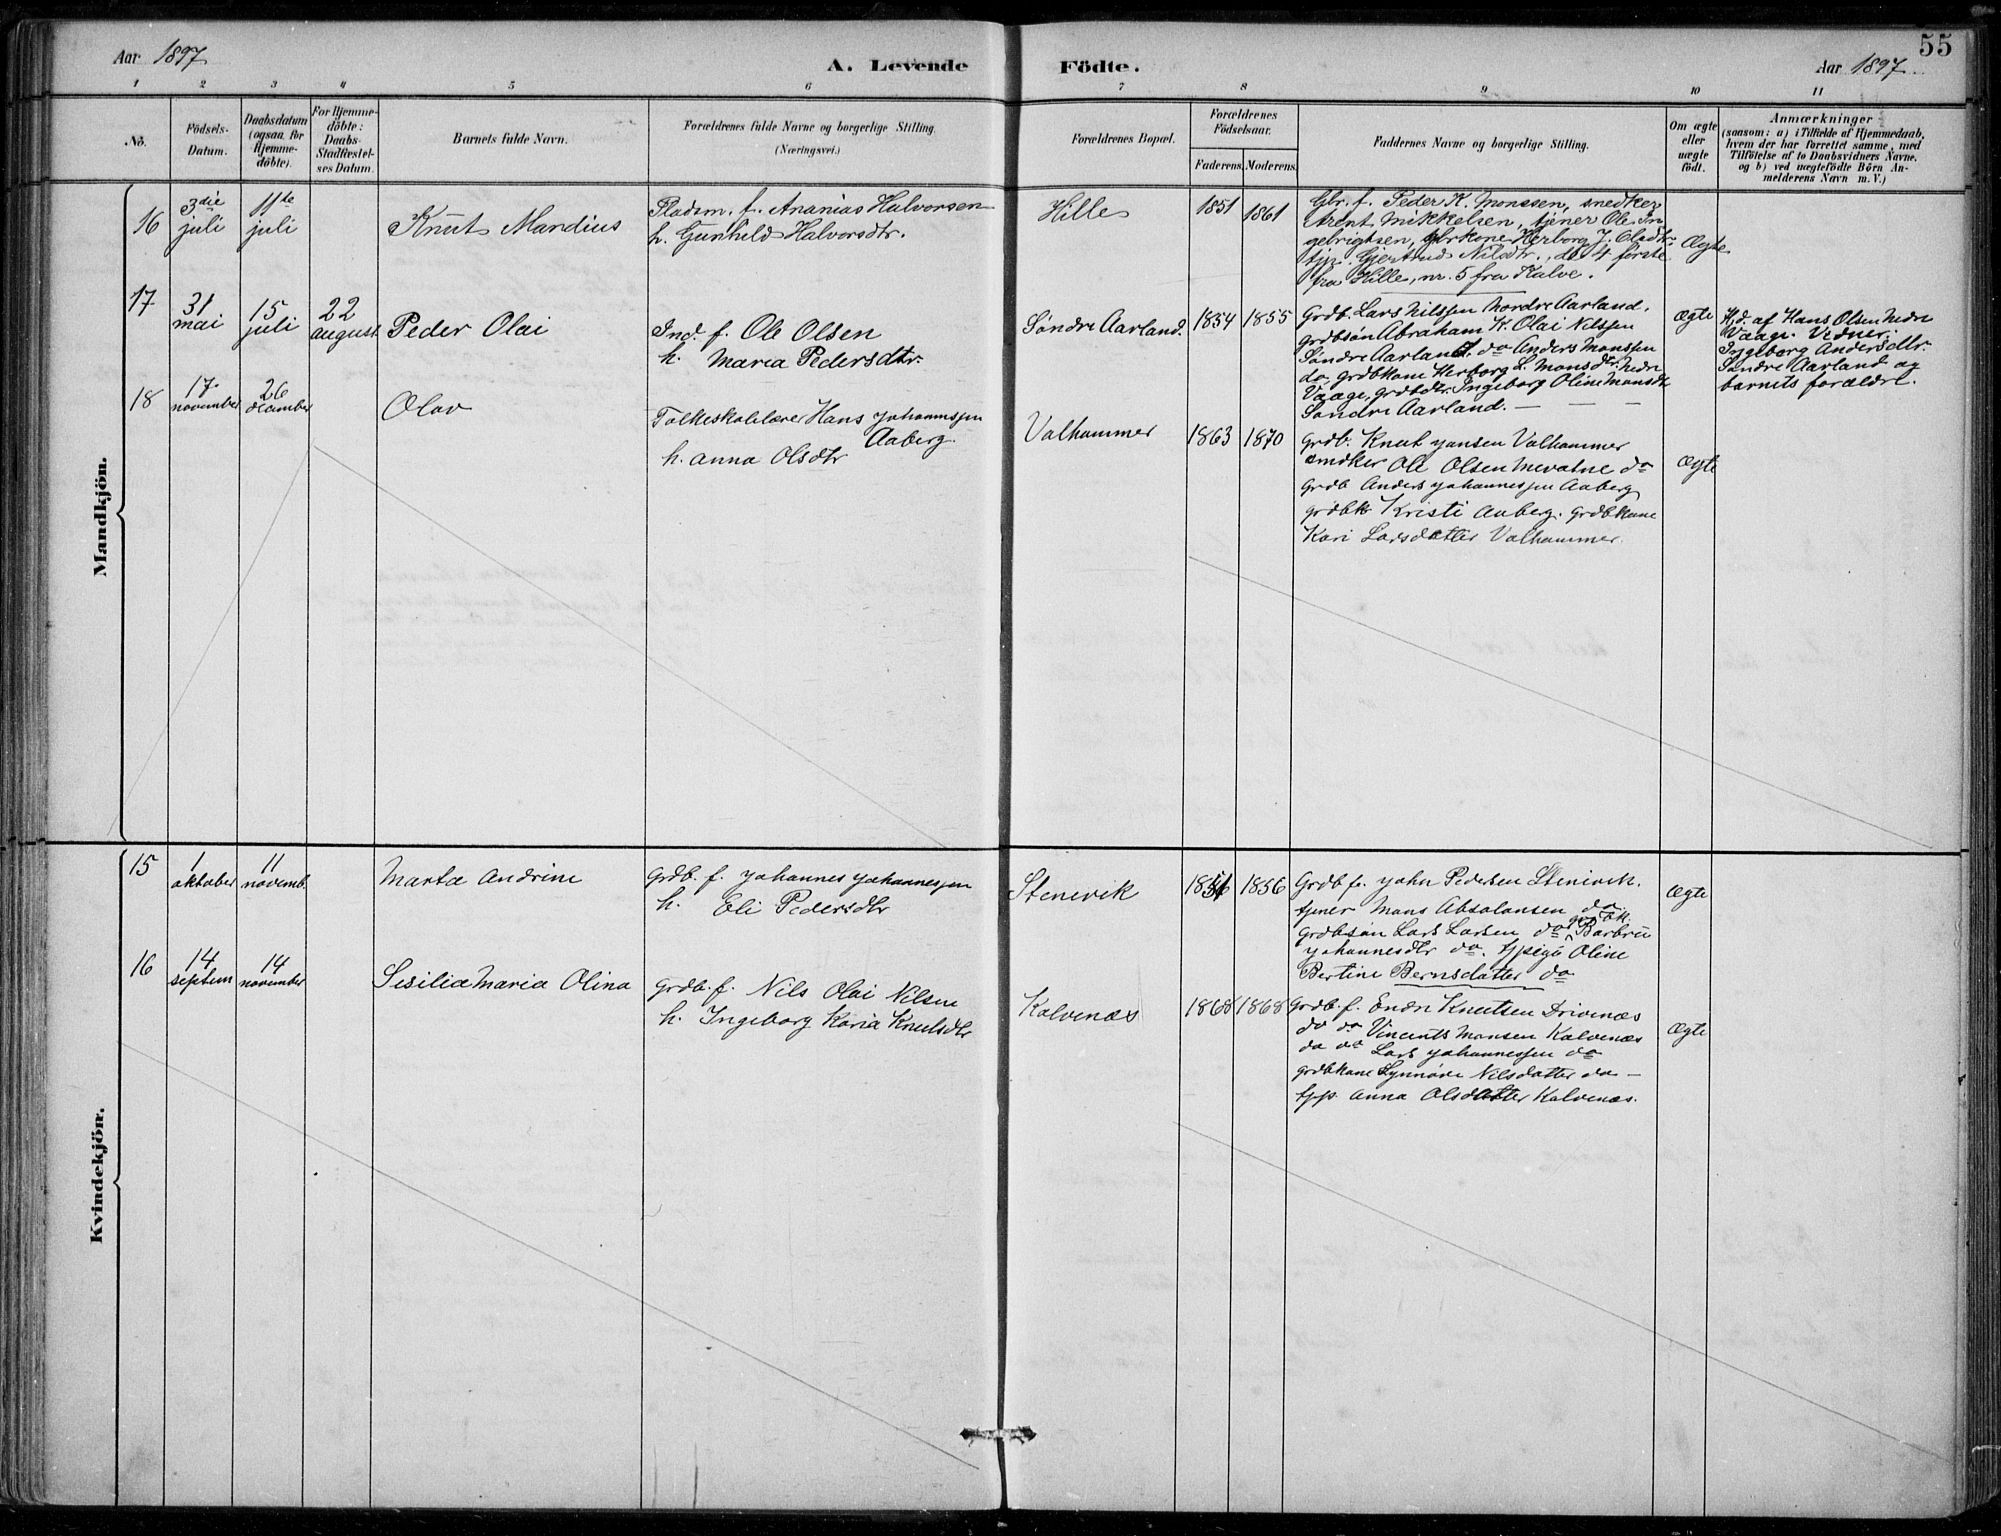 55
Aar 1897
A. Levende Födte.
Aar 1897
1 2 3 4 5 6 7 8 9 10 11
No.
Födsels-
Datum.
Daabsdatum
(ogsaa for
Hjemme-
döbte).
For Hjemme-
döbte:
Daabs-
Stadfæstel-
ses Datum.
Barnets fulde Navn.
Forældrenes fulde Navne og borgerlige Stilling.
(Næringsvei.)
Forældrenes Bopæl.
Forældrenes
Födselsaar.
Faderens. Moderens.
Faddernes Navne og borgerlige Stilling.
Om ægte
eller
uægte
födt.
Anmærkninger
(saasom: a) i Tilfælde af Hjemmedaab,
hvem der har forrettet samme, med
Tilföielse af to Daabsvidners Navne,
og b) ved uægtefödte Börn An-
melderens Navn m. V.)
Mandkjön.
16
3die
juli
11te
juli
Knut Mandius
Pladsm. f. Ananias Halvorsen
h. Gunhild Halvorsdtr.
Hille
1851 1861
Gbr. f. Peder K. Monssen, snedker
Arent Mikkelsen, tjener Ole In
gebrigtsen, gbrkone Herborg J. Olsdtr.
tjp. Gjertrud Nilsdtr., de 4 første
fra Hille, nr. 5 fra Kalve.
Ægte
17
31
mai
15
juli
22
august
Peder Olai
Ind. f. Ole Olsen
h. Maria Pedersdtr.
Søndre Aarland.
1854 1855
Grdb. Lars Nilssen Nordre Aarland.
grdbsøn Abraham K. Olai Nilssen
Søndre Aarland. do Anders Monssen
do grdbkone Herborg L. Monsdtr. Nedre
Vaage, grdbdtr. Ingeborg Oline Monsdtr
Søndre Aarland. — — —
Ægte
Hjd. af Hans Olsen Nedre
Vaage. Vidner:
Ingeborg Andersdtr.
Søndre Aarland og
barnets forældre.
18
17.
november
26
december
Olav
Folkeskolelærer Hans Johannessen
Aaberg
h. Anna Olsdtr
Valhammer
1863 1870
Grdb. Knut Jansen Valhammer
smdker Ole Olsen Mevatne do
Grdb Anders Johannessen Aaberg
grdbk Kristi Aaberg. Grdbkone
Kari Larsdatter Valhammer.
Ægte
Kvindekjön.
15
1
oktober
11
novemb.
Marta Andrine
Grdb. f. Johannes Johannessen
h. Eli Pedersdtr
Stenevik
1856
Grdb f. John Pedersen Stenivik.
tjener Mons Absalonsen do.
grdbsøn Lars Larsen do grdbk. Barbru
Johannesdtr do. tjpige Oline
Bertine Bernsdatter do
Ægte
16
14
septem
14
november
Sesilia Maria Olina
Grdb. f. Nils Olai Nilsen
h. Ingeborg Karia Knutsdtr
Kalvenæs
1868 1868
Grdb. f. Endr Knutsen Drivenæs
do do Vincents Monsen Kalvenæs
do do Lars Johannessen do
grdbkone Synnøve Nilsdatter do —
tjp. Anna Olsdatter Kalvenæs.
Ægte